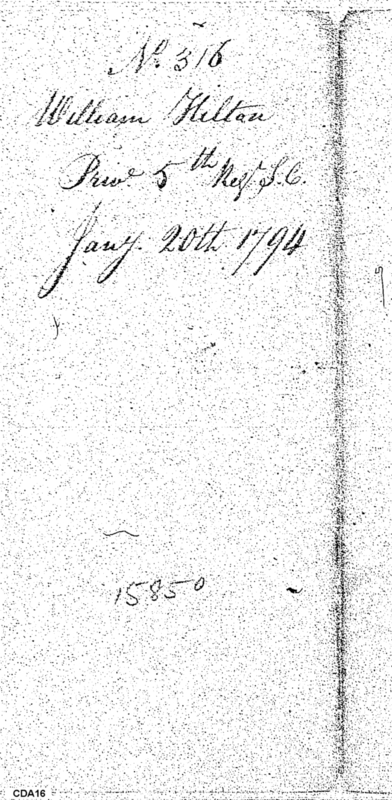 No. 316
William Hilton
Priv. 5th Regt. S.C.
Jany. 20th 1794
15850
CDA16